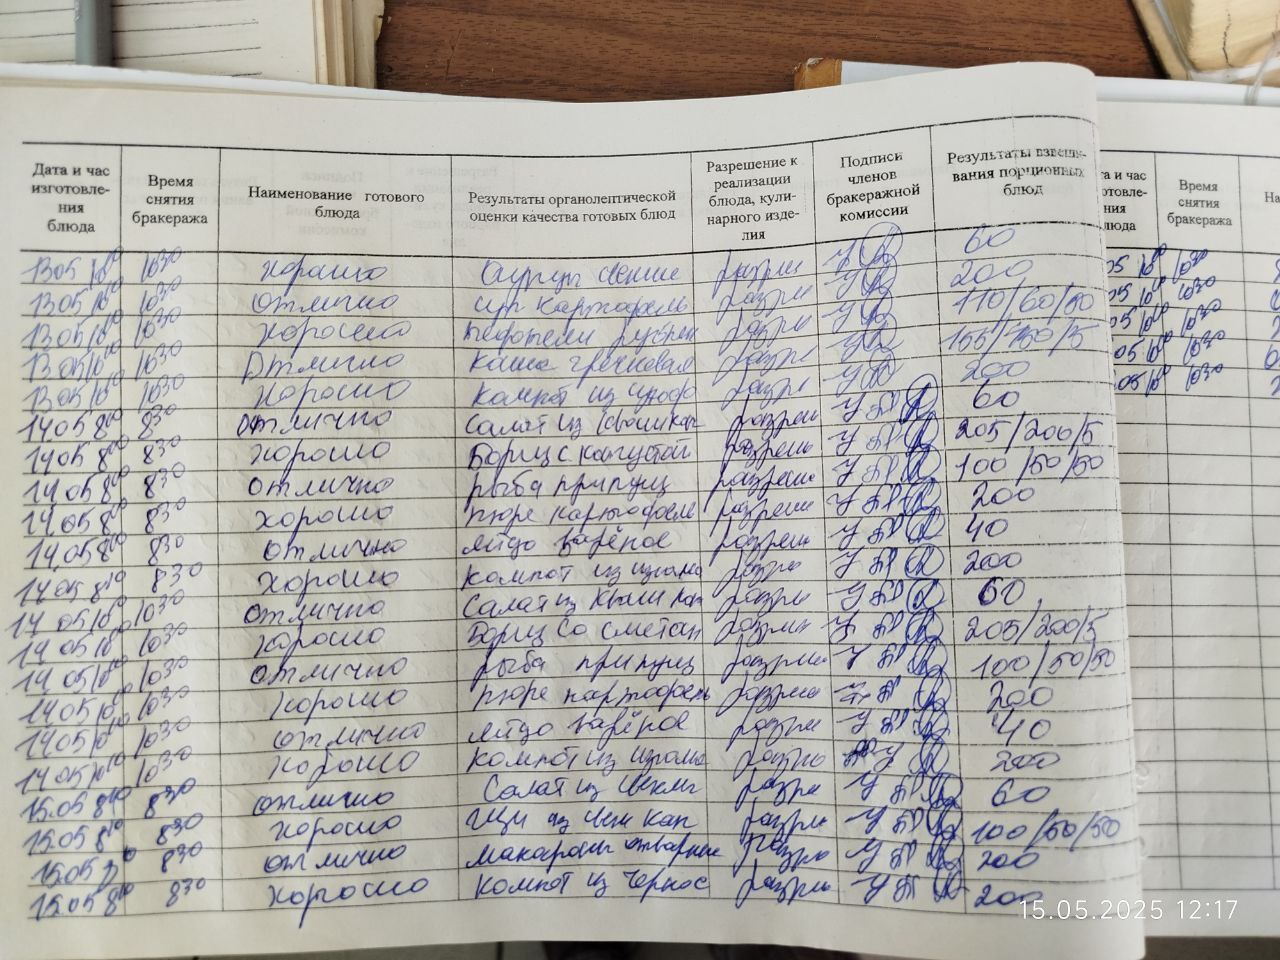 Дата и час изготовле-ния блюда | Время снятия бракеража | Наименование готового блюда | Результаты органолептической оценки качества готовых блюд | Разрешение к реализации блюда, кули-нарного изде-лия | Подписи членов бракеражной комиссии | Результаты взвеши-вания порционных блюд
13.05 10⁰⁰ 10³⁰ хорошо огурцы свежие разреш 60
13.05 10⁰⁰ 10³⁰ отлично суп картофель разреш 200
13.05 10⁰⁰ 10³⁰ хорошо разре 110/60/50
13.05 10⁰⁰ 10³⁰ Отлично каша гречневая разре 155/150/5
13.05 10⁰⁰ 10³⁰ Хорошо компот из разр 200
14.05 8⁰⁰ 8³⁰ отлично салат из разреш 60
14.05 8⁰⁰ 8³⁰ хорошо Борщ с капустой разреш 205/200/5
14.05 8⁰⁰ 8³⁰ отлично рыба припущ разреше 100/50/50
14.05 8⁰⁰ 8³⁰ хорошо пюре картофеле разреше 200
14.05 8⁰⁰ 8³⁰ отлично яйцо варёное разреш 40
14.05 8⁰⁰ 8³⁰ хорошо компот из изюма разре 200
14.05 10⁰⁰ 10³⁰ отлично Салат из разре 60
14.05 10⁰⁰ 10³⁰ хорошо Борщ со сметан разреш 205/200/5
14.05 10⁰⁰ 10³⁰ отлично рыба припущ разреш 100/50/50
14.05 10⁰⁰ 10³⁰ хорошо пюре картофель разреш 200
14.05 10⁰⁰ 10³⁰ отлично яйцо варёное разре 40
14.05 10⁰⁰ 10³⁰ хорошо компот из изюма разреш 200
15.05 8⁰⁰ 8³⁰ отлично Салат из свеклы разре 60
15.05 8⁰⁰ 8³⁰ хорошо щи из свеж кап разреш 100/50/50
15.05 8³⁰ отлично макароны отварные разре 200
15.05 8⁰⁰ 8³⁰ хорошо компот из чернос разреш 200
Время снятия бракеража
10³⁰
10³⁰
10³⁰
10³⁰
10³⁰
15.05.2025 12:17